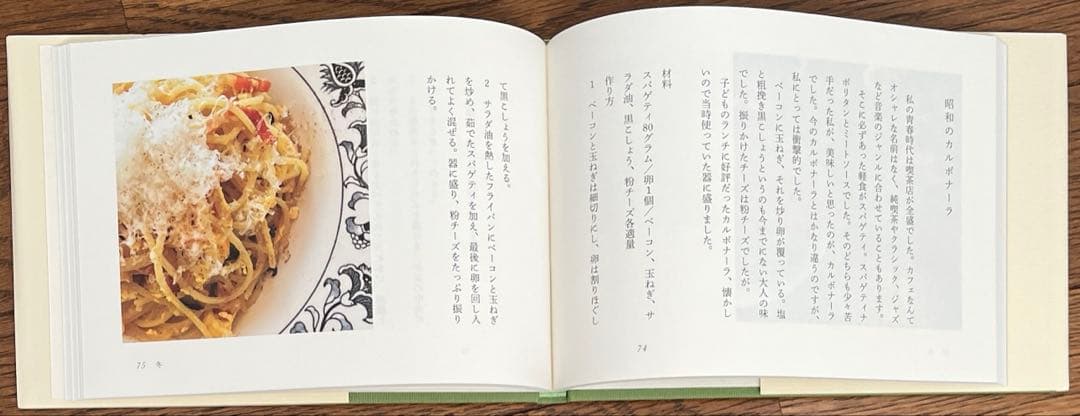 昭和のカルボナーラ
私の青春時代は喫茶店が全盛でした。カフェなんて
オシャレな名前はなく、純喫茶やクラシック、ジャズ
など音楽のジャンルに合わせていることもあります。
そこに必ずあった軽食がスパゲティ。スパゲティナ
ポリタンとミートソースでした。そのどちらも少々苦
手だった私が、美味しいと思ったのが、カルボナーラ
でした。今のカルボナーラとはかなり違うのですが、
私にとっては衝撃的でした。
ベーコンに玉ねぎ、それを炒り卵が覆っている。塩
と粗挽き黒こしょうというのも今までにない大人の味
でした。振りかけたチーズは粉チーズでしたが。
子どものランチに好評だったカルボナーラ、懐かし
いので当時使っていた器に盛りました。
材料
スパゲティ80グラム/卵1個/ベーコン、玉ねぎ、サ
ラダ油、黒こしょう、粉チーズ各適量
作り方
1 ベーコンと玉ねぎは細切りにし、卵は割りほぐし
74
て黒こしょうを加える。
2 サラダ油を熱したフライパンにベーコンと玉ねぎ
を炒め、茹でたスパゲティを加え、最後に卵を回し入
れてよく混ぜる。器に盛り、粉チーズをたっぷり振り
かける。
75 冬